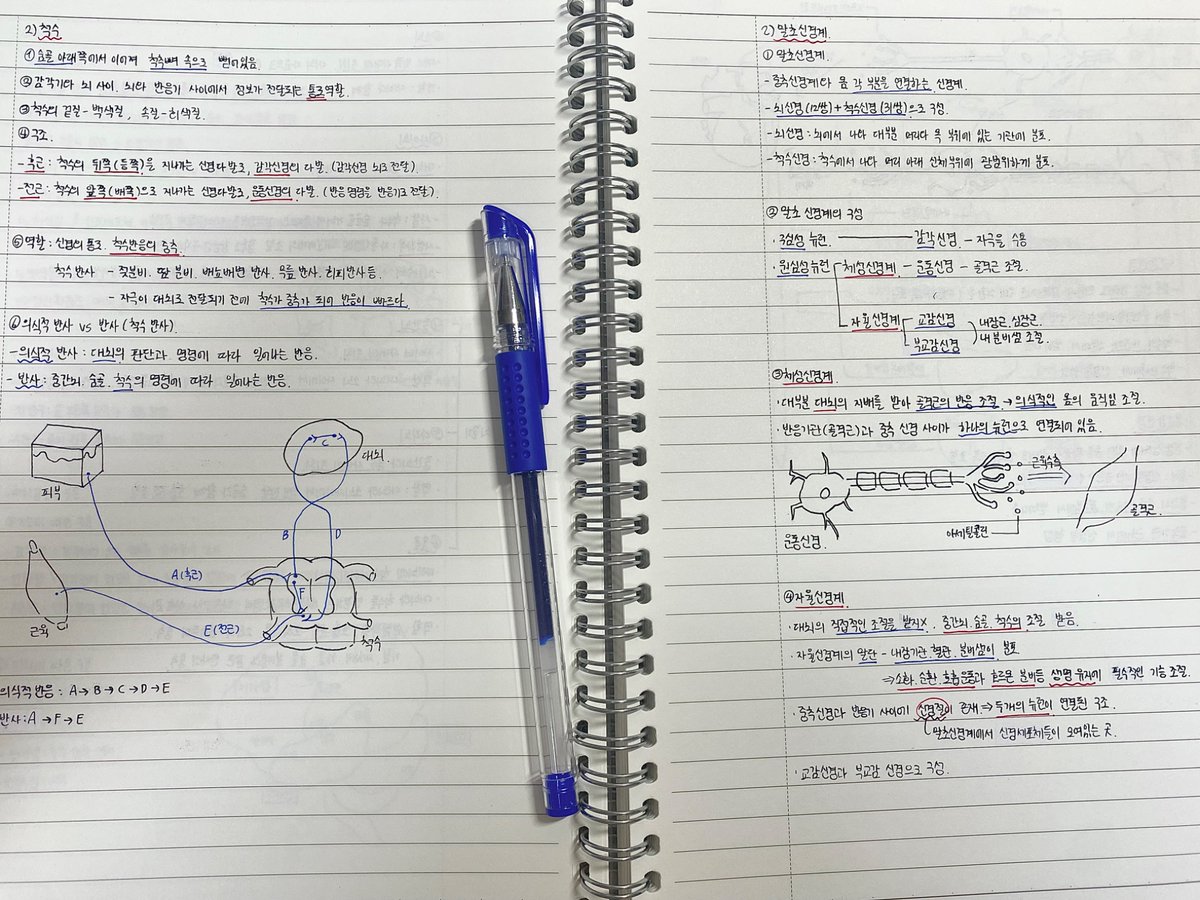 2) 척수
① 숨골 아래쪽에서 이어져 척추뼈 속으로 뻗어있음.
② 감각기와 뇌 사이, 뇌와 반응기 사이에서 정보가 전달되는 통로역할.
③ 척수의 겉질-백색질, 속질-회색질.
④ 구조.
-후근: 척수의 뒤쪽(등쪽)을 지나가는 신경다발로, 감각신경의 다발. (감각신경 뇌로 전달).
-전근: 척수의 앞쪽(배쪽)으로 지나가는 신경다발로, 운동신경의 다발. (반응명령을 반응기로 전달).
⑤ 역할: 신경의 통로. 척수반응의 중추.
척수반사 - 젖분비. 땀 분비. 배뇨배변 반사. 무릎 반사. 회피반사 등.
- 자극이 대뇌로 전달되기 전에 척수가 중추가 되어 반응이 빠르다.
⑥ 의식적 반사 vs 반사(척수 반사).
-의식적 반사: 대뇌의 판단과 명령에 따라 일어나는 반응.
- 반사: 중간뇌. 숨골. 척수의 명령에 따라 일어나는 반응.
피부
대뇌
C
B
D
A(후근)
F
E(전근)
근육
척수
의식적 반응: A→B→C→D→E
반사: A→F→E
2) 말초신경계.
① 말초신경계.
-중추신경계와 몸 각 부분을 연결하는 신경계.
-뇌신경(12쌍)+척수신경(31쌍)으로 구성.
-뇌신경: 뇌에서 나와 대부분 머리와 목 부위에 있는 기관에 분포.
-척수신경: 척수에서 나와 머리 아래 신체부위에 광범위하게 분포.
② 말초 신경계의 구성
· 구심성 뉴런. 감각신경 - 자극을 수용
· 원심성뉴런 체성신경계 - 운동신경 - 골격근 조절.
자율신경계 교감신경 부교감신경 내장근. 심장근. 내분비샘 조절.
③ 체성신경계
· 대부분 대뇌의 지배를 받아 골격근의 반응 조절 → 의식적인 몸의 움직임 조절.
· 반응기관(골격근)과 중추 신경 사이가 하나의 뉴런으로 연결되어 있음.
근육수축
골격근
운동신경.
아세틸콜린
④ 자율신경계
· 대뇌의 직접적인 조절을 받지X. 중간뇌. 숨골. 척수의 조절 받음.
· 자율신경계의 말단 - 내장기관. 혈관. 분비샘에 분포
⇒ 소화. 순환. 호흡운동과 호르몬 분비등 생명 유지에 필수적인 기능 조절.
· 중추신경과 반응기 사이에 신경절이 존재. ⇒ 두개의 뉴런이 연결된 구조.
말초신경계에서 신경세포체들이 모여있는 곳.
· 교감신경과 부교감 신경으로 구성.